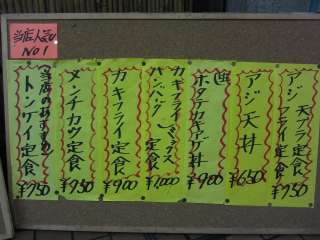 当店人気
NO1
アジ 天プラ定食
フライ定食
¥750
アジ天丼
¥650
ホタテカキアゲ丼
¥900
カキフライ
ハンバーグ ミックス定食
¥1,000
カキフライ定食
¥900
メンチカツ定食
¥750
当店のおすすめ
トンテイ定食
¥750